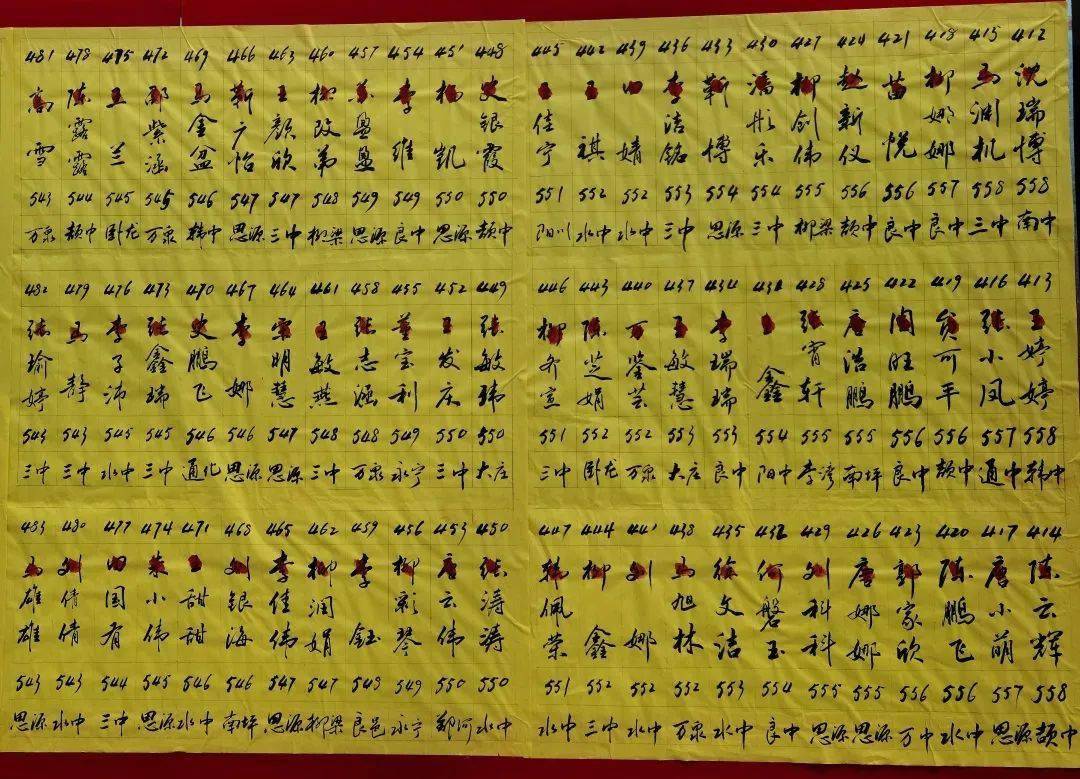 481 478 475 472 469 466 463 460 457 454 451 448
高雪 陈露露 王兰 邵紫涵 马金盆 靳广怡 王颜欣 柳改弟 苏盈盈 李维 杨凯 史银霞
543 544 545 545 546 547 547 548 549 549 550 550
万泉 颉中 卧龙 万泉 韩中 思源 三中 柳梁 思源 良中 思源 颉中
482 479 476 473 470 467 464 461 458 455 452 449
张瑜婷 马静 李子沛 张鑫瑞 史鹏飞 李娜 宋明慧 王敏燕 张志涵 董宝利 王发庆 张敏玮
543 543 545 545 546 546 547 548 548 549 550 550
三中 三中 水中 三中 通化 思源 思源 三中 万泉 永宁 三中 大庄
483 480 477 474 471 468 465 462 459 456 453 450
马雄雄 刘倩倩 田国有 朱小伟 王甜甜 刘银海 李佳伟 柳润娟 李钰 柳彩琴 唐云伟 张涛涛
543 543 544 545 546 546 547 547 548 549 550 550
思源 水中 三中 思源 水中 南坪 思源 柳梁 良邑 永宁 郑河 水中
445 442 439 436 433 430 427 424 421 418 415 412
王佳宁 王祺 田婧 李洁铭 靳博 潘彤乐 柳剑伟 赵新仪 苗悦 柳娜娜 马渊机 沈瑞博
551 552 552 553 554 554 555 556 556 557 558 558
阳川 水中 水中 三中 思源 三中 柳梁 颉中 良中 良中 三中 南中
446 443 440 437 434 431 428 425 422 419 416 413
柳乔宣 陈芝娟 万鉴芸 王敏慧 李瑞瑞 王鑫 张宵轩 唐浩鹏 闫旺鹏 贠可平 张小凤 王婷婷
551 552 552 553 553 554 555 555 556 556 557 558
三中 卧龙 万泉 大庄 良中 阳中 李湾 南坪 良中 颉中 通中 韩中
447 444 441 438 435 432 429 426 423 420 417 414
韩佩荣 柳鑫 刘娜 马旭林 徐文洁 何磐玉 刘科科 唐娜娜 郭家欣 陈鹏飞 唐小萌 陈云辉
551 552 552 552 553 554 555 555 556 556 557 558
水中 三中 水中 万泉 水中 良中 思源 思源 万中 水中 思源 颉中